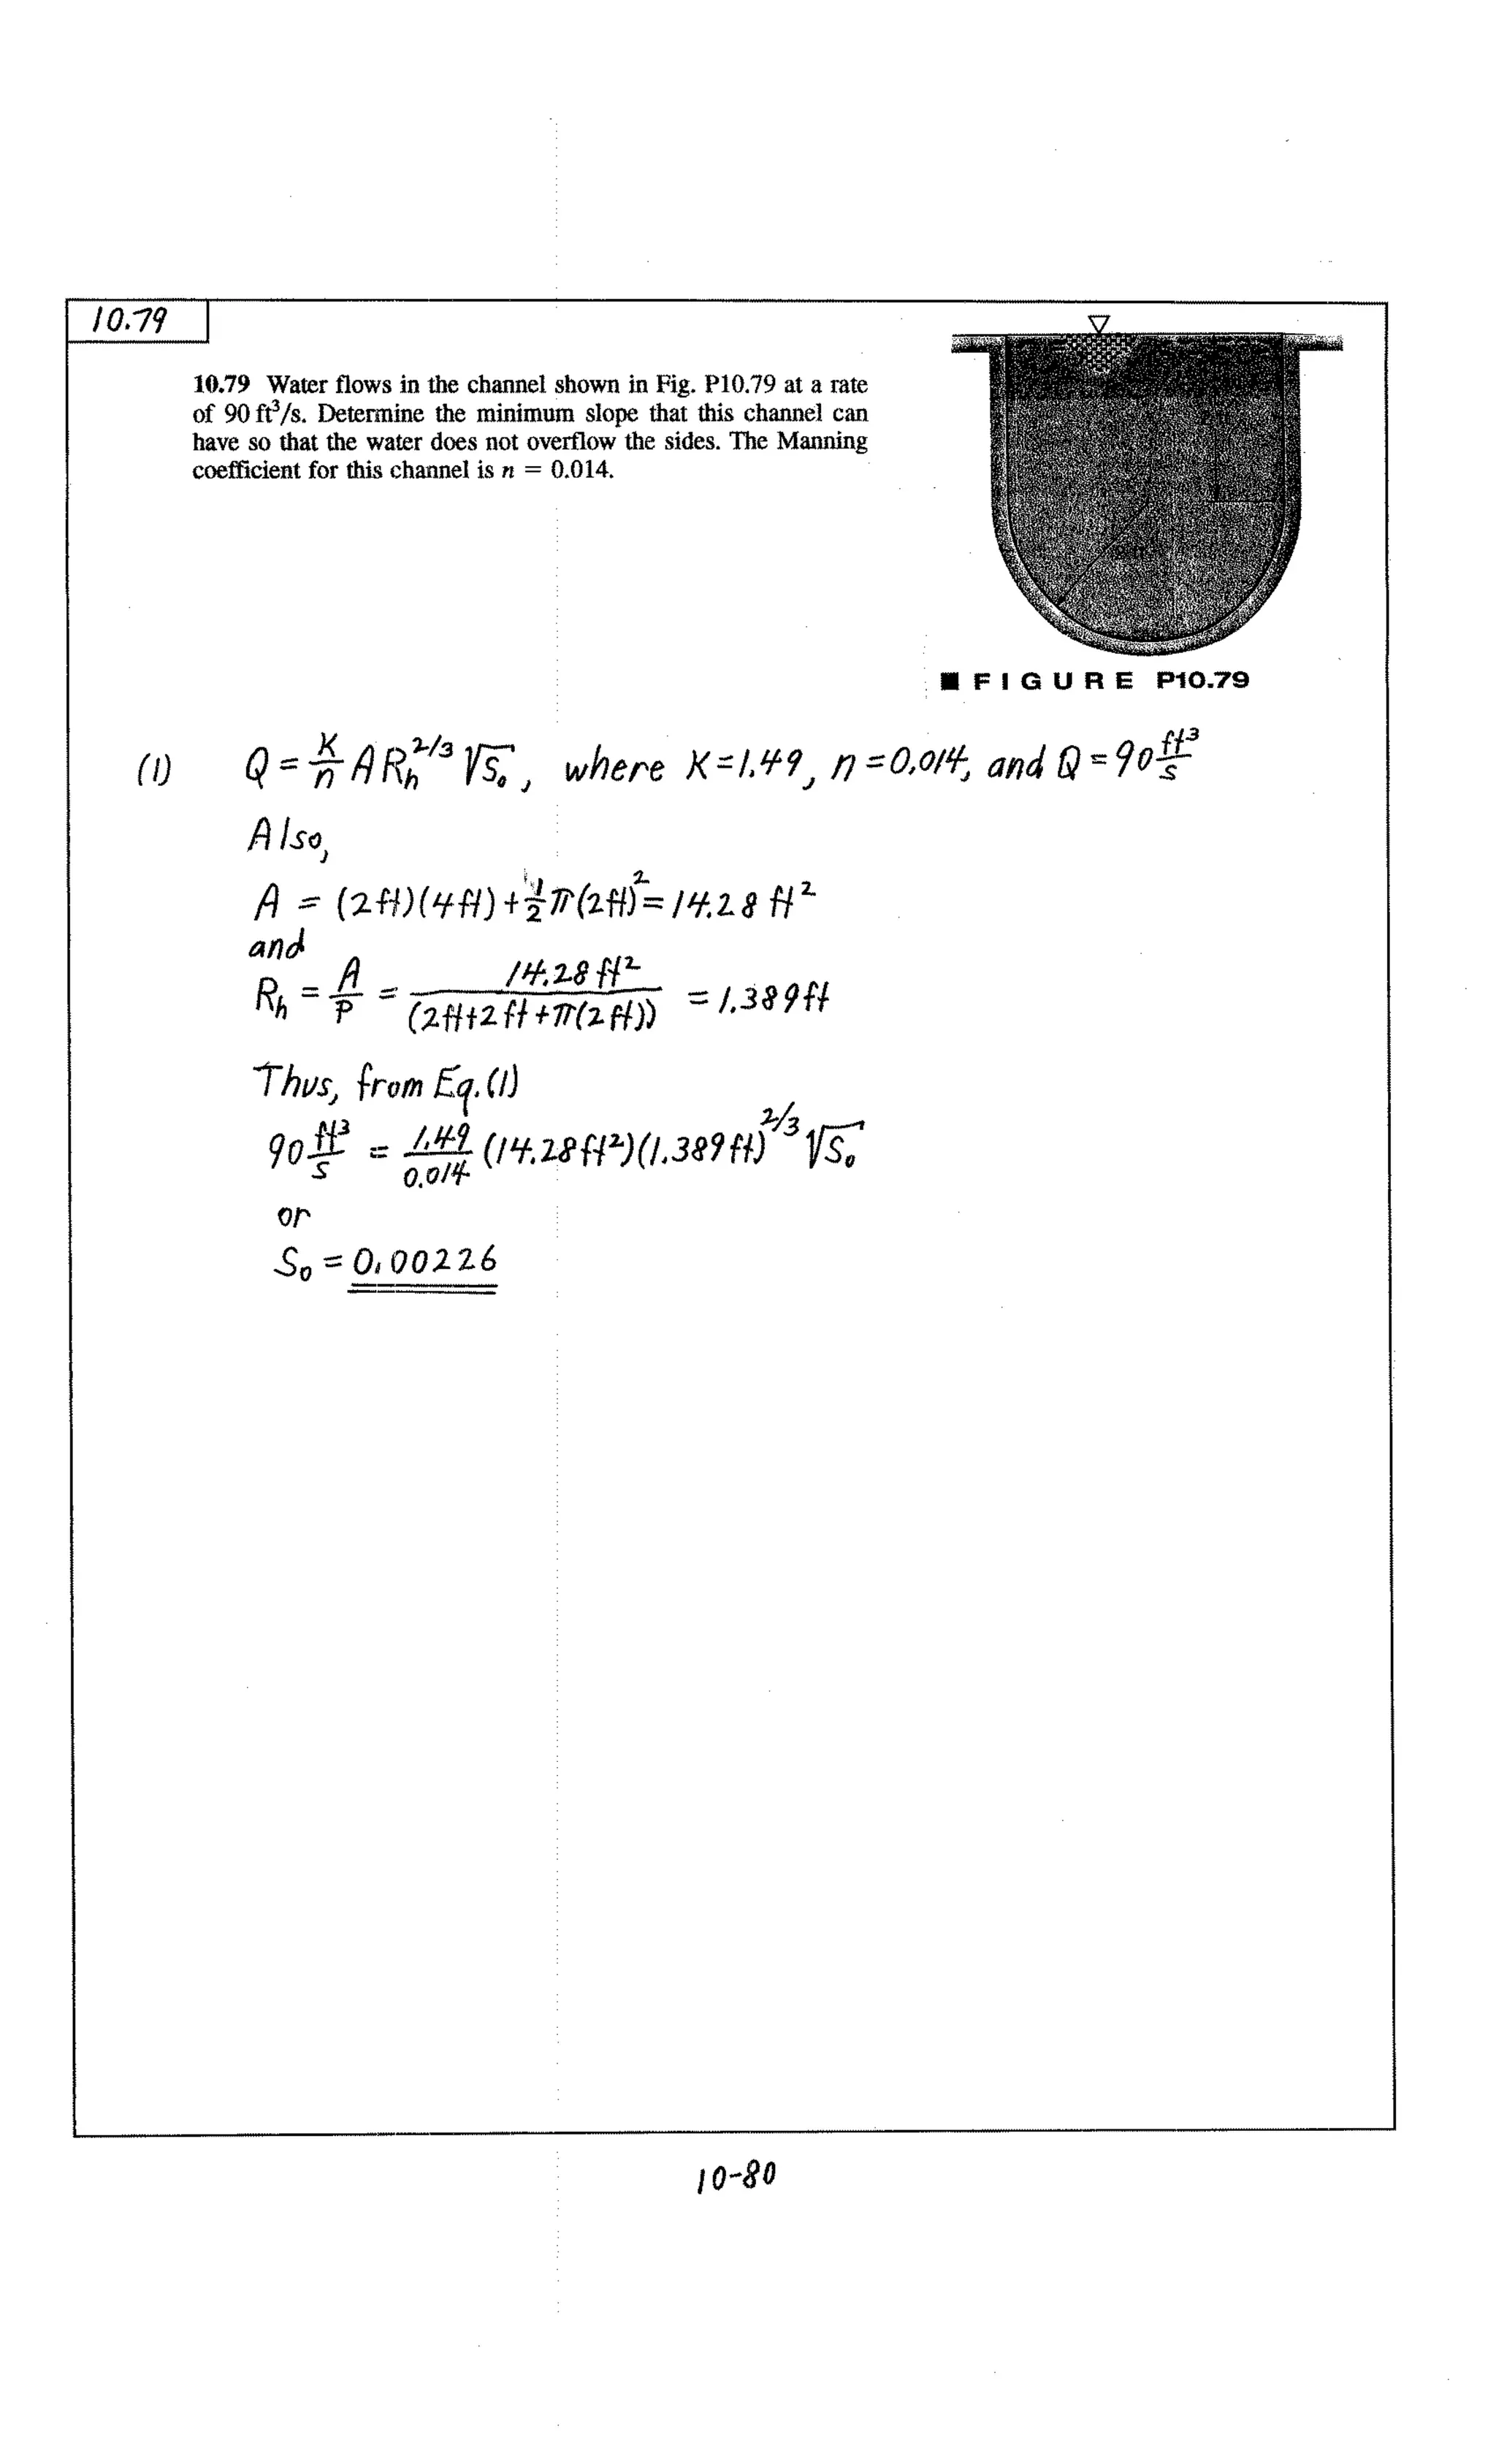 10.79
10.79 Water flows in the channel shown in Fig. P10.79 at a rate
of 90 ft³/s. Determine the minimum slope that this channel can
have so that the water does not overflow the sides. The Manning
coefficient for this channel is n = 0.014.
■ FIGURE P10.79
(1) Q = K/n A R_h^2/3 √S₀, where K=1.49, n=0.014, and Q=90 ft³/s
Also,
A = (2ft)(4ft)+1/2π(2ft)²=14.28 ft²
and
R_h = A/P = 14.28 ft²/(2ft+2ft+π(2ft)) = 1.389ft
Thus, from Eq.(1)
90 ft³/s = 1.49/0.014 (14.28ft²)(1.389ft)^2/3 √S₀
or
S₀ = 0.00226
10-80